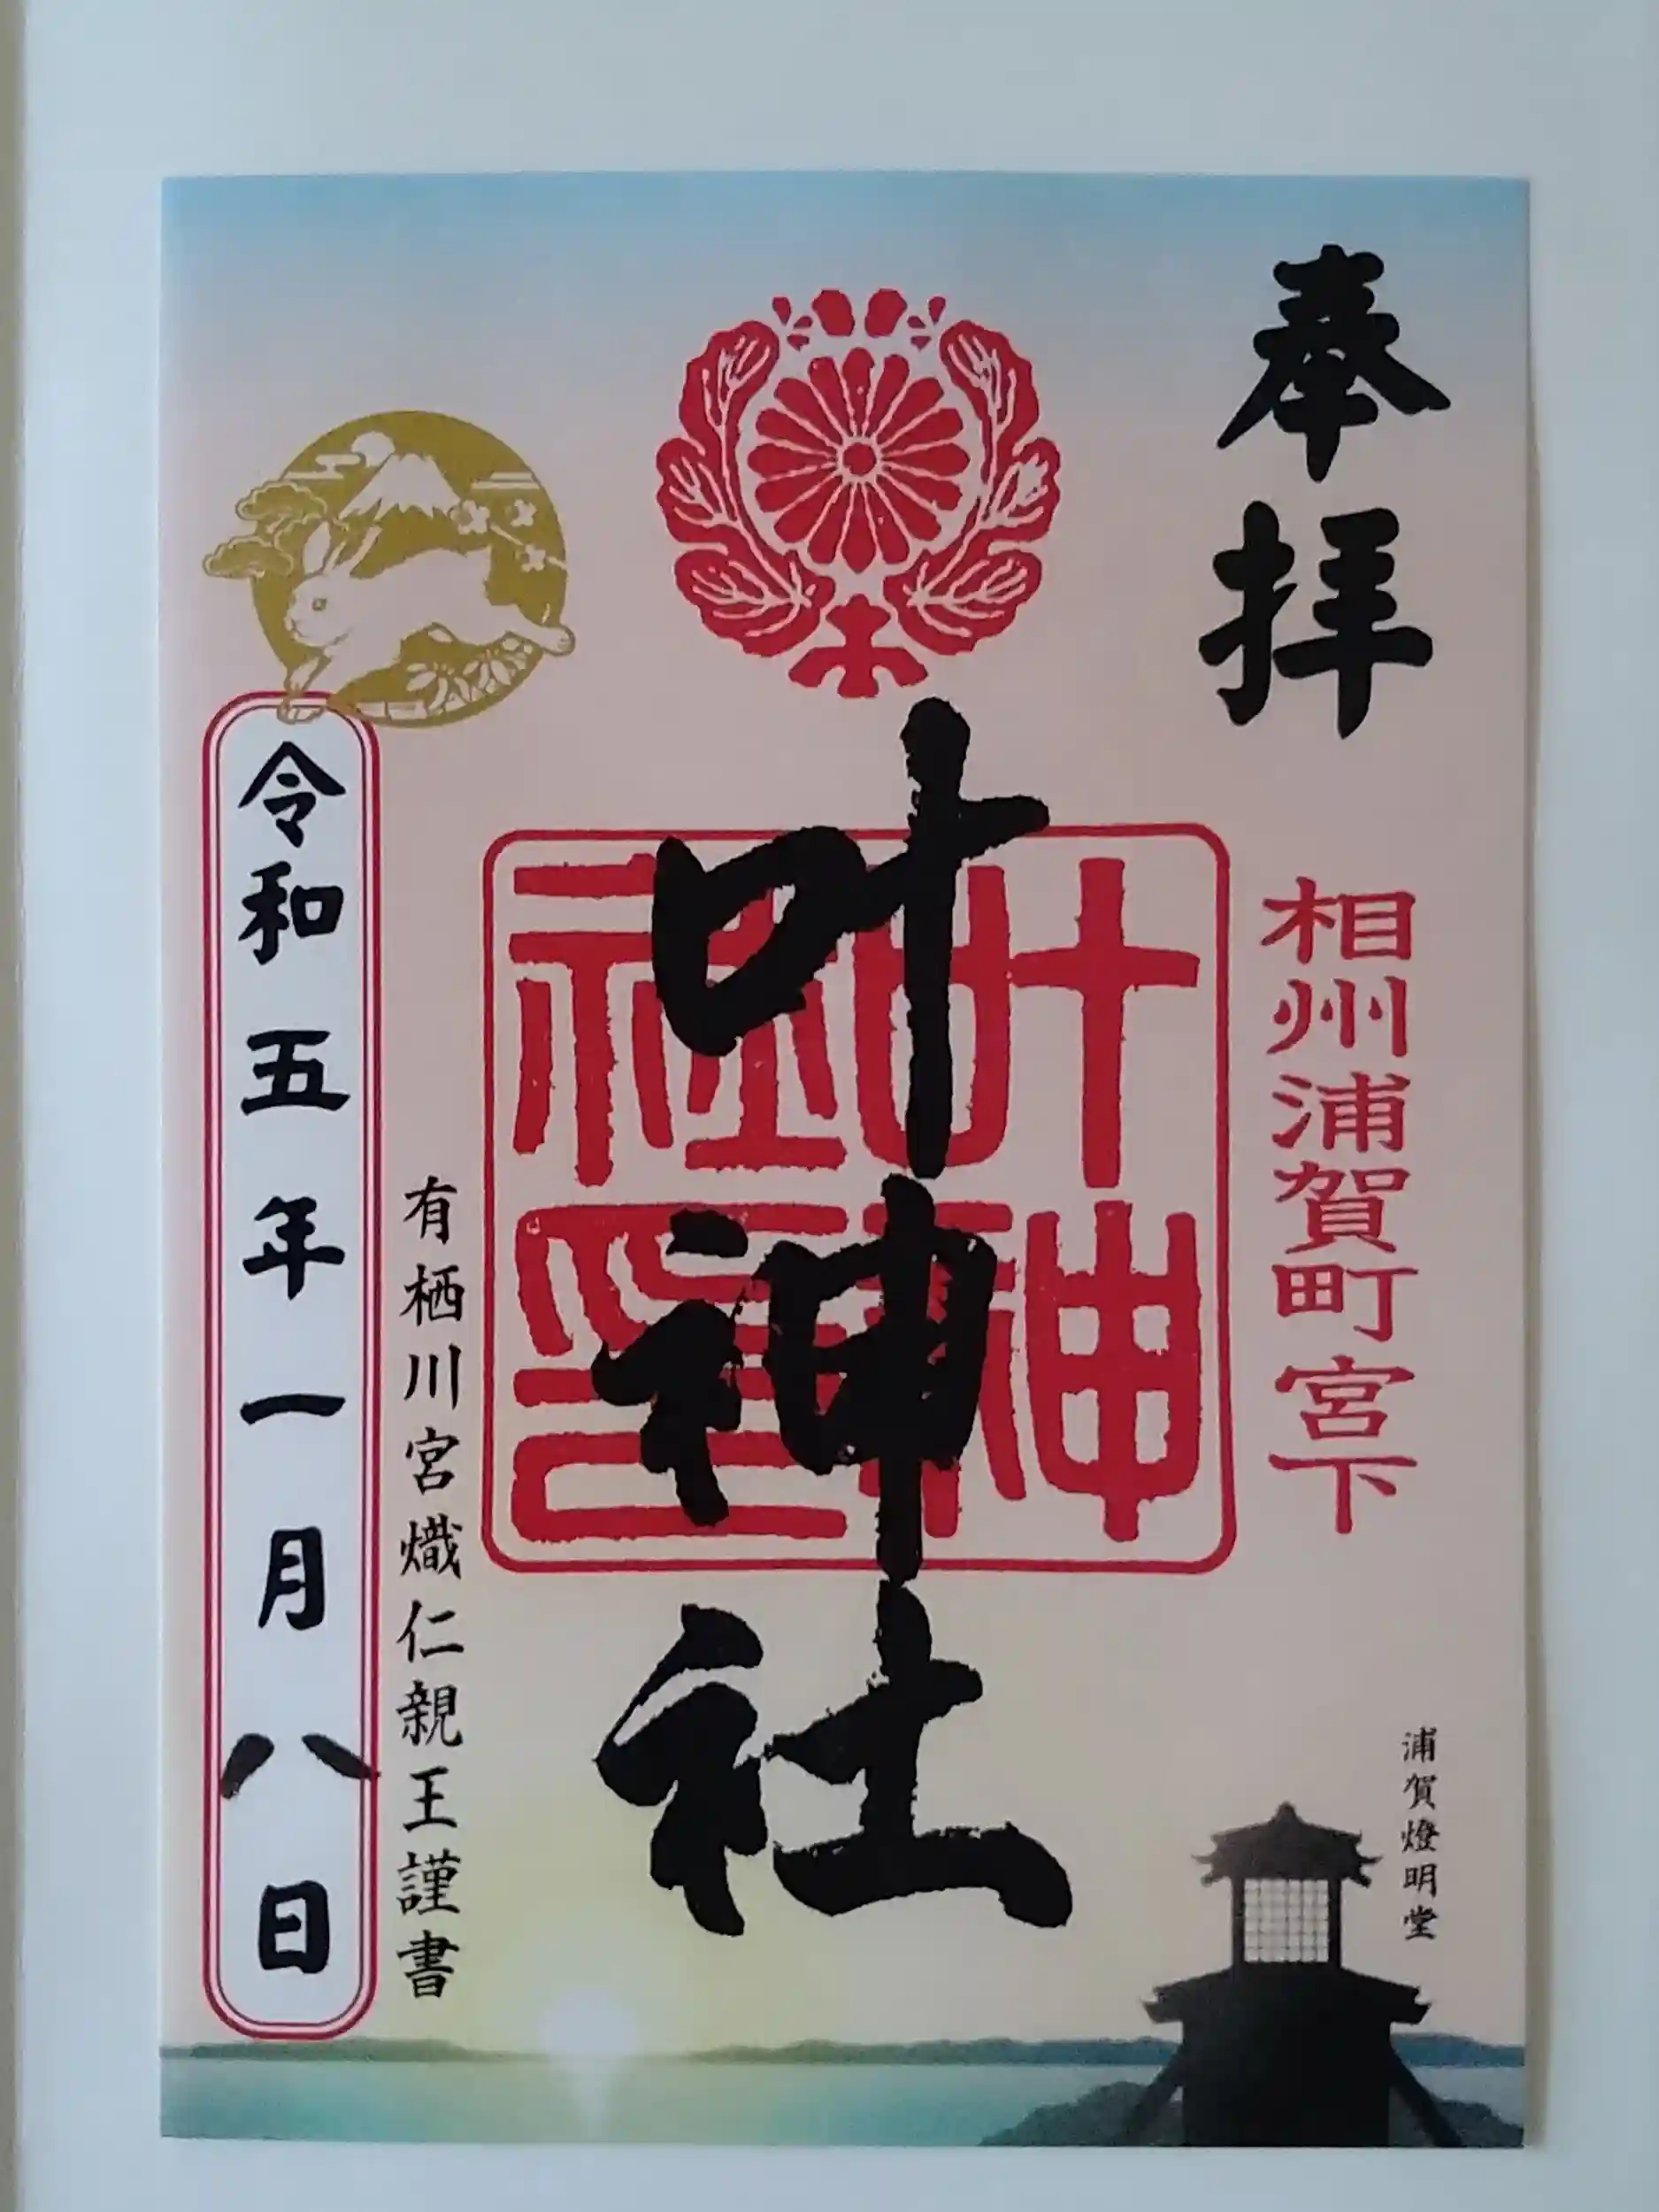 奉拝
相州浦賀町宮下
浦賀燈明堂
叶神社
叶神社印
有栖川宮熾仁親王謹書
令和五年一月八日